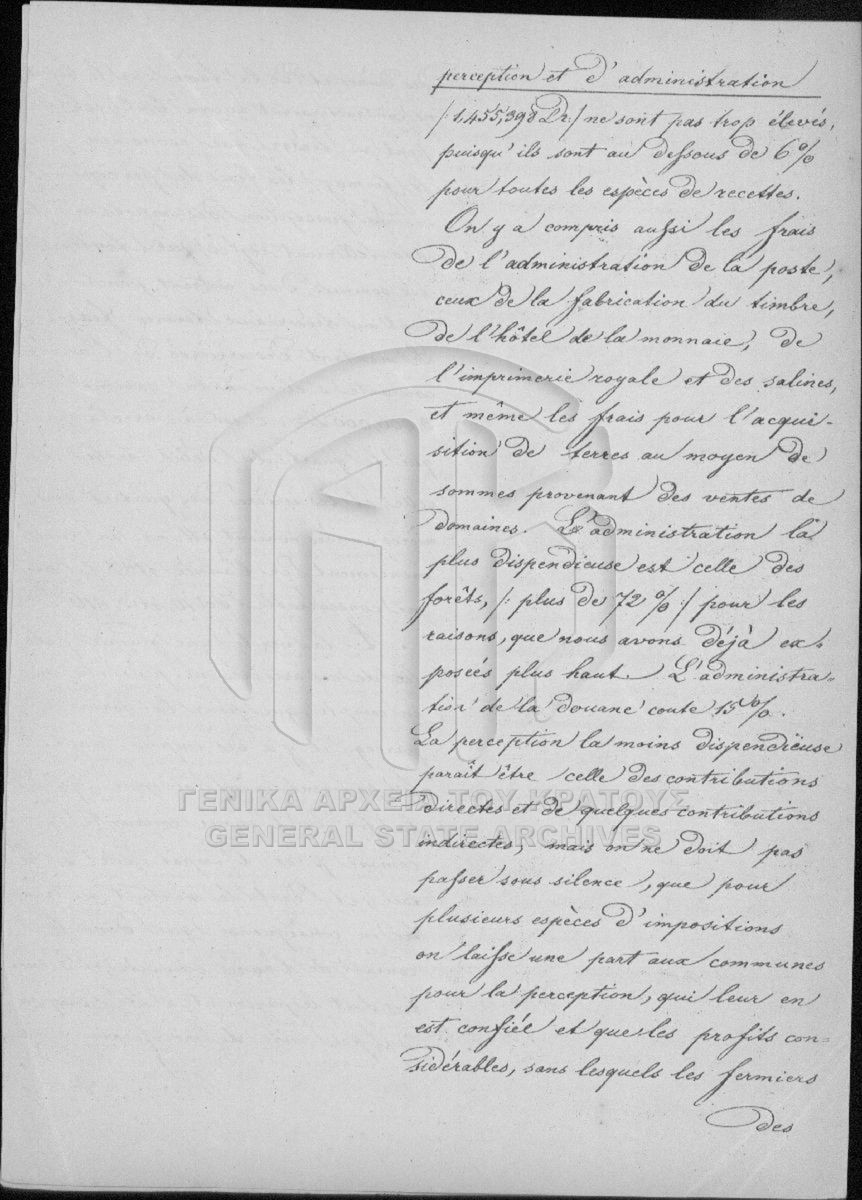 perception et d'administration
/:1,455,398 Dr:/ ne sont pas trop élevés,
puisqu'ils sont au dessous de 6%
pour toutes les espèces de recettes.
On y a compris aussi les frais
de l'administration de la poste,
ceux de la fabrication du timbre,
de l'hôtel de la monnaie, de
l'imprimerie royale et des salines,
et même les frais pour l'acqui-
sition de terres au moyen de
sommes provenant des ventes de
domaines. L'administration la
plus dispendieuse est celle des
forêts, /: plus de 72% :/ pour les
raisons, que nous avons déjà ex-
posées plus haut. L'administra-
tion de la douane coute 15%.
La perception la moins dispendieuse
paraît être celle des contributions
directes et de quelques contributions
indirectes, mais on ne doit pas
passer sous silence, que pour
plusieurs espèces d'impositions
on laisse une part aux communes
pour la perception, qui leur en
est confiée et que les profits con-
sidérables, sans lesquels les fermiers
des
ΓΕΝΙΚΑ ΑΡΧΕΙΑ ΤΟΥ ΚΡΑΤΟΥΣ
GENERAL STATE ARCHIVES